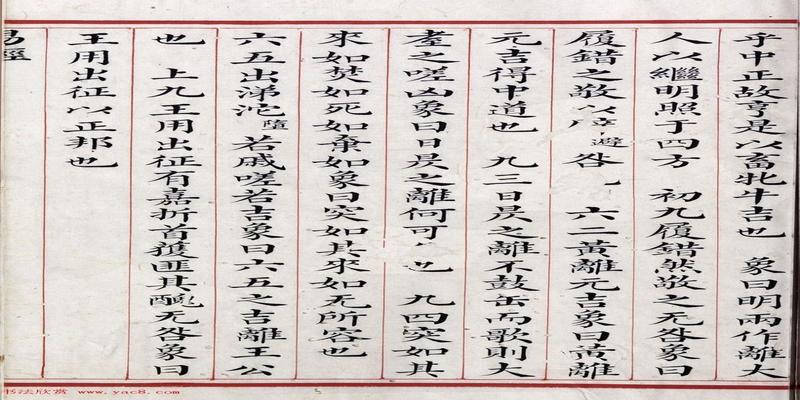 乎中正故亨是以畜牝牛吉也 象曰明兩作離大
人以繼明照于四方 初九履錯然敬之无咎象曰
履錯之敬以 咎 六二黃離元吉象曰黃離
元吉得中道也 九三日昃之離不鼓缶而歌則大
耋之嗟凶象曰日昃之離何可 也 九四突如其
來如焚如死如棄如象曰突如其來如无所容也
六五出涕沱墮若戚嗟若吉象曰六五之吉離王公
也 上九王用出征有嘉折首獲匪其醜无咎象曰
王用出征以正邦也
易經
书法欣赏 www.yac8.com